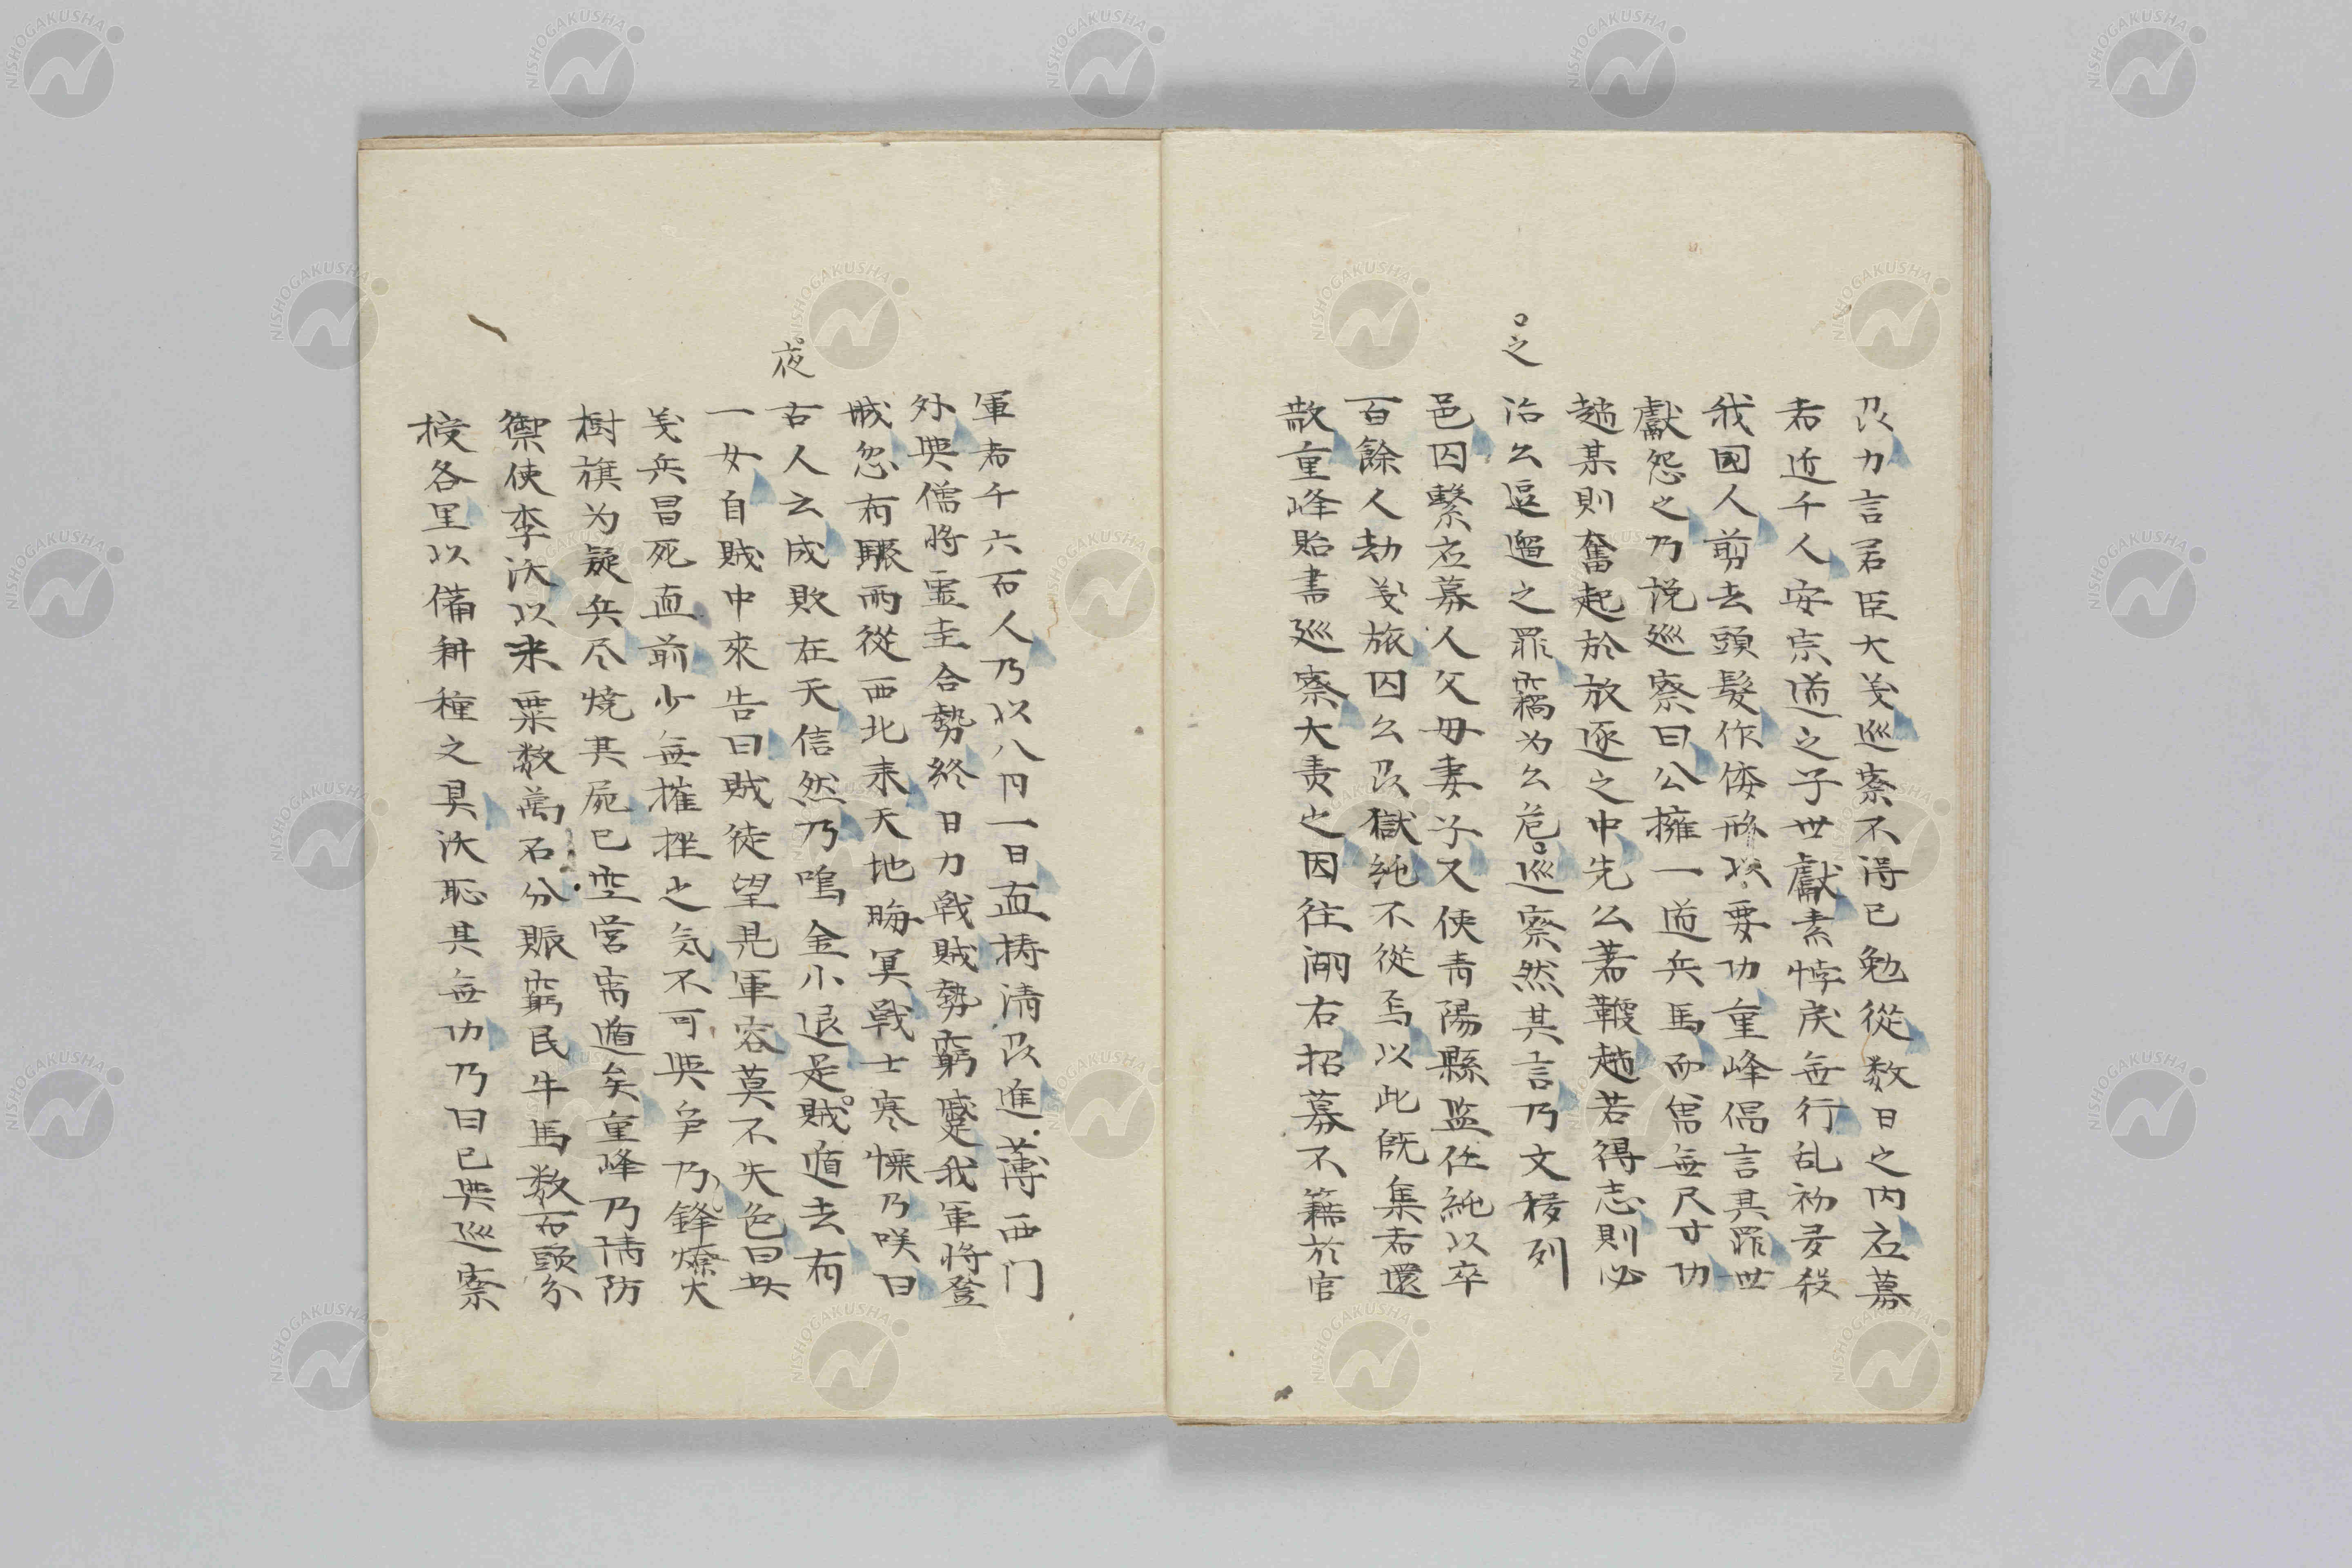 之
州力言君臣大義巡察不得已勉從数日之内应募
者近千人安宗道之子世獻素悖戾無行乱初多殺
我國人剪去頭髮作倭形以要功重峰倡言其罪世
獻怨之乃説巡察曰公擁一道兵馬而嘗無尺寸功
趙某則奮起於放逐之中先公著鞭趙若得志則必
治公逗遛之罪竊为公危巡察然其言乃文移列
邑囚繫应募人父母妻子又使青陽縣監任純以卒
百餘人劫義旅囚公州獄純不從焉以此既集者還
散重峰貽書巡察大責之因往湖右招募不籍於官
夜
軍者千六百人乃以八月一日直擣清州進薄西门
外與僧将霊圭合勢終日力戰賊勢窮蹙我軍将登
城忽有驟雨從西北来天地晦冥戰士寒慄乃咲曰
古人云成敗在天信然乃鳴金小退是賊遁去有
一女自賊中來告曰賊徒望見軍容莫不失色曰此
義兵冒死直前少無摧挫之気不可與争乃鋒燎火
樹旗为疑兵尽焼其屍已空営宵遁矣重峰乃請防
禦使李沃以米粟数萬石分賑窮民牛馬数百頭分
授各里以備耕種之具沃恥其無功乃曰已與巡察
NISHOGAKUSHA